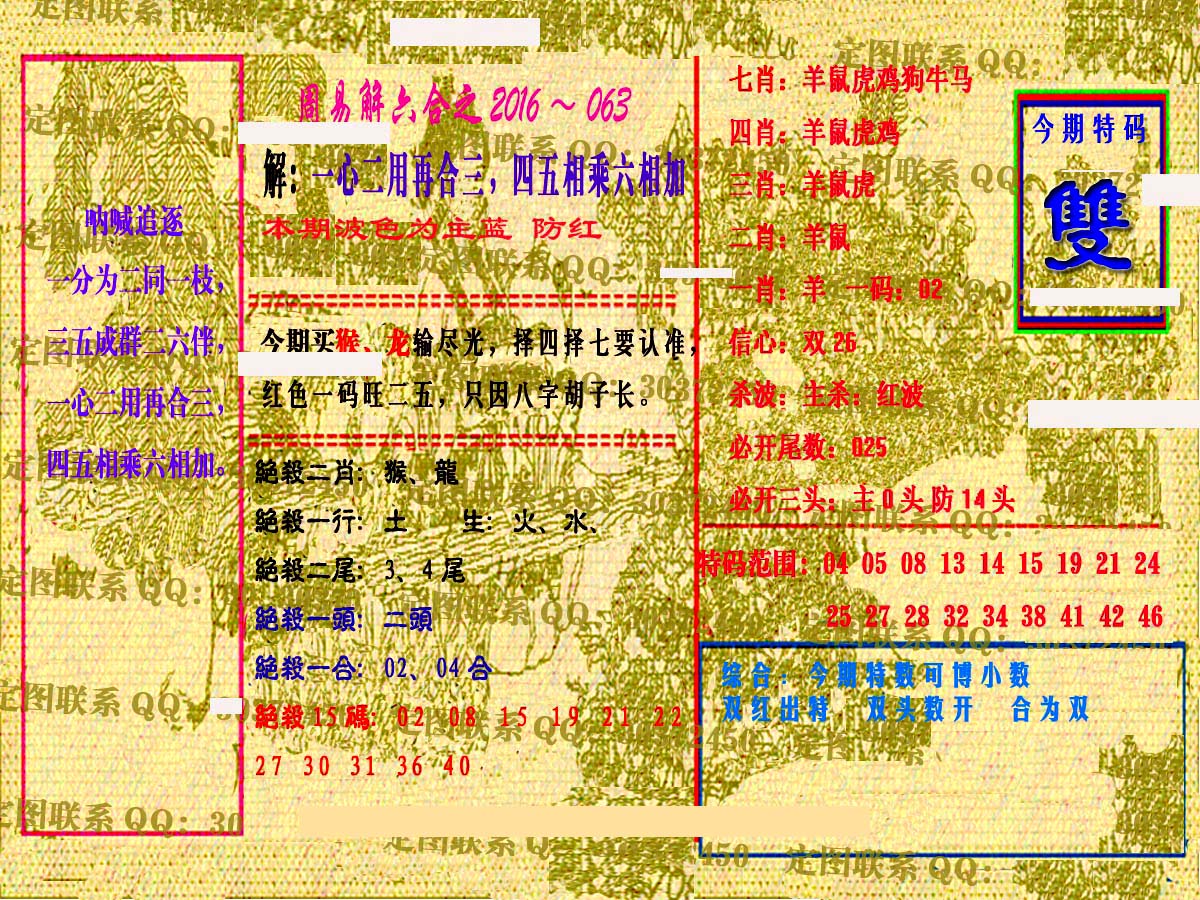 呐喊追逐
一分为二同一枝，
三五成群二六伴，
一心二用再合三，
四五相乘六相加。
周易解六合之2016～063
解：一心二用再合三，四五相乘六相加
本期波色为主蓝 防红
今期买猴、龙输尽光，择四择七要认准，
红色一码旺二五，只因八字胡子长。
絕殺二肖：猴、龍
絕殺一行：土 生：火、水、
絕殺二尾：3、4尾
絕殺一頭：二頭
絕殺一合：02、04合
絕殺15碼：02 08 15 19 21 22
27 30 31 36 40
七肖：羊鼠虎鸡狗牛马
四肖：羊鼠虎鸡
三肖：羊鼠虎
二肖：羊鼠
一肖：羊 一码：02
信心：双26
杀波：主杀：红波
必开尾数：025
必开三头：主0头防14头
今期特码
雙
特码范围：04 05 08 13 14 15 19 21 24
25 27 28 32 34 38 41 42 46
综合：今期特数可博小数
双红出特，双头数开 合为双
定图联系QQ：